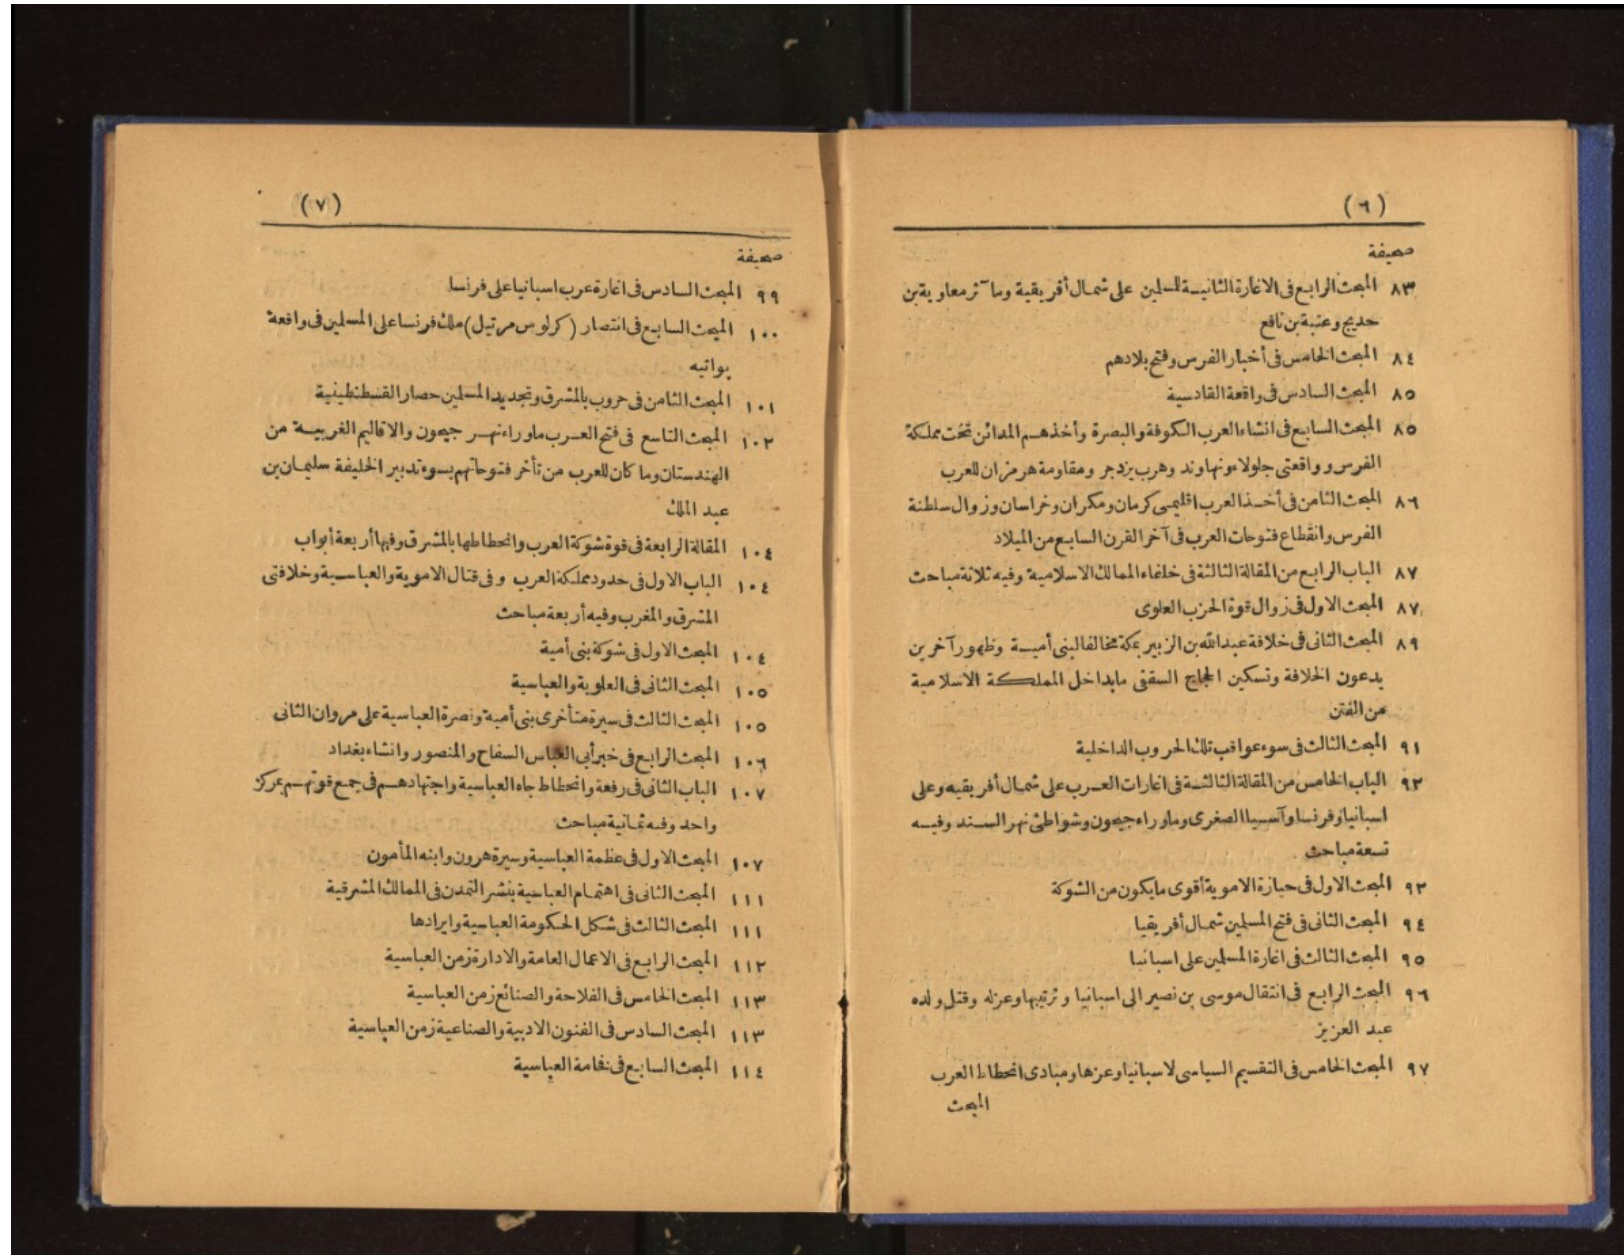 (٦)
صحيفة
٨٣ المبحث الرابع فى الاغارة الثانيــة للمسلمين على شمــال أفريقية وما آثر معاوية بن
حديج وعتبة بن نافع
٨٤ المبحث الخامس فى أخبار الفرس وفتح بلادهم
٨٥ المبحث السادس فى واقعة القادسية
٨٥ المبحث السابع فى انشاء العرب الكوفة والبصرة وأخذهــم المدائن تخت مملكة
الفرس وواقعتى جلولاء ونهاوند وهرب يزدجر ومقاومة هرمزان للعرب
٨٦ المبحث الثامن فى أخــذ العرب اقليمى كرمان ومكران وخراسان وزوال سلطنة
الفرس وانقطاع فتوحات العرب فى آخر القرن السابع من الميلاد
٨٧ الباب الرابع من المقالة الثالثة فى خلفاء الممالك الاسلامية وفيه ثلاثة مباحث
٨٧ المبحث الاول فى زوال قوة الحزب العلوى
٨٩ المبحث الثانى فى خلافة عبد الله بن الزبير بمكة مخالفا لبنى أميــة وظهور آخرين
يدعون الخلافة وتسكين الحجاج السقفى مابداخل المملكــة الاسلامية
من الفتن
٩١ المبحث الثالث فى سوء عواقب تلك الحروب الداخلية
٩٢ الباب الخامس من المقالة الثالثــة فى اغارات العــرب على شمــال أفريقيه وعلى
اسبانيا وفرنسا وآسيا الصغرى وماوراء جيحون وشواطئ نهر الســند وفيــه
تسعة مباحث
٩٢ المبحث الاول فى حيازة الاموية أقوى مايكون من الشوكة
٩٤ المبحث الثانى فى فتح المسلمين شمــال أفريقيا
٩٥ المبحث الثالث فى اغارة المسلمين على اسبانيا
٩٦ المبحث الرابع فى انتقال موسى بن نصير الى اسبانيا وترتيبها وعزله وقتل ولده
عبد العزيز
٩٧ المبحث الخامس فى التقسيم السياسى لاسبانيا وعزها ومبادى انحطاط العرب
المبحث
(٧)
صحيفة
٩٩ المبحث السادس فى اغارة عرب اسبانيا على فرنسا
١٠٠ المبحث السابع فى انتصار (كرلوس مرتيل) ملك فرنسا على المسلمين فى واقعة
بواتيه
١٠١ المبحث الثامن فى حروب بالمشرق وتجديد المسلمين حصار القسطنطينية
١٠٢ المبحث التاسع فى فتح العــرب ماوراء نهــر جيحون والاقاليم الغربيــة من
الهندستان وما كان للعرب من تأخر فتوحاتهم بسوء تدبير الخليفة سليمــان بن
عبد الملك
١٠٤ المقالة الرابعة فى قوة شوكة العرب وانحطاطها بالمشرق وفيها أربعة أبواب
١٠٤ الباب الاول فى حدود مملكة العرب وفى قتال الاموية والعباســية وخلافتى
المشرق والمغرب وفيه أربعة مباحث
١٠٤ المبحث الاول فى شوكة بنى أمية
١٠٥ المبحث الثانى فى العلوية والعباسية
١٠٥ المبحث الثالث فى سيرة متأخرى بنى أمية ونصرة العباسية على مروان الثانى
١٠٦ المبحث الرابع فى خبر أبى العباس السفاح والمنصور وانشاء بغداد
١٠٧ الباب الثانى فى رفعة وانحطاط جاه العباسية واجتهادهــم فى جمع قوتهــم بمركز
واحد وفيه ثمانية مباحث
١٠٧ المبحث الاول فى عظمة العباسية وسيرة هرون وابنه المأمون
١١١ المبحث الثانى فى اهتمــام العباسية بنشر التمدن فى الممالك المشرقية
١١١ المبحث الثالث فى شكل الحكومة العباسية وايرادها
١١٢ المبحث الرابع فى الاعمال العامة والادارة زمن العباسية
١١٣ المبحث الخامس فى الفلاحة والصنائع زمن العباسية
١١٣ المبحث السادس فى الفنون الادبية والصناعية زمن العباسية
١١٤ المبحث السابع فى فخامة العباسية